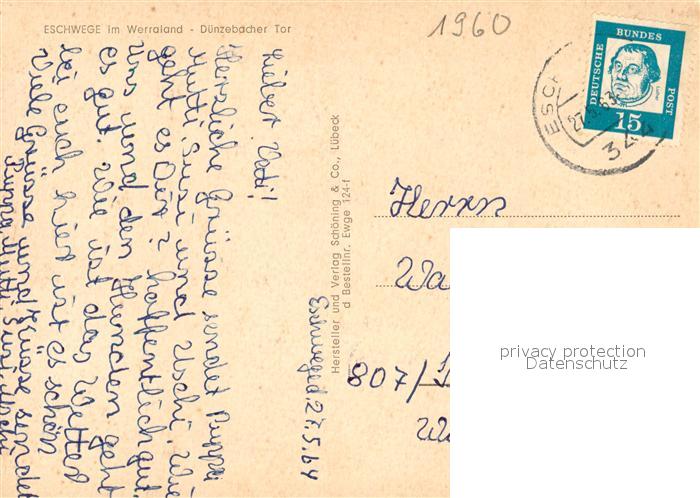 ESCHWEGE im Werraland - Dünzebacher Tor
1960
DEUTSCHE BUNDES POST
15
344
27.5.63
Herrn
Wa
807/1
privacy protection
Datenschutz
Hersteller und Verlag Schöning & Co., Lübeck
d Bestellnr. Ewge 124-f
Eschwege d. 27.5.64
Lieber Vati!
Herzliche Grüsse sendet Puppa
Mutti, Susi und Uschi. Wie
geht es Dir? hoffentlich gut.
Uns und den Hunden geht
es gut. Wie ist das Wetter
bei euch hier ist es schön
Viele Grüsse und Küsse sendet
Puppa, Mutti, Susi, Uschi